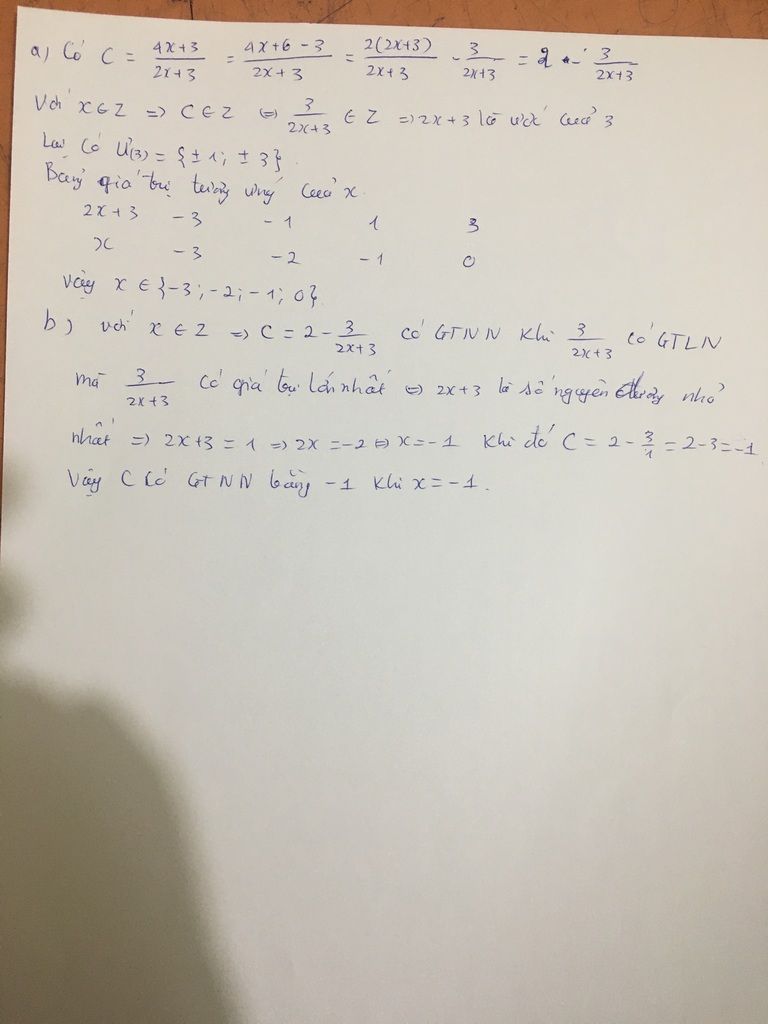 a) Có C = \frac{4x+3}{2x+3} = \frac{4x+6-3}{2x+3} = \frac{2(2x+3)}{2x+3} - \frac{3}{2x+3} = 2 - \frac{3}{2x+3}
Với x ∈ Z => C ∈ Z <=> \frac{3}{2x+3} ∈ Z => 2x+3 là ước của 3
Lại có Ư(3) = {±1; ±3}.
Bảng giá trị tương ứng của x.
2x+3 -3 -1 1 3
x -3 -2 -1 0
Vậy x ∈ {-3; -2; -1; 0}.
b) với x ∈ Z => C = 2 - \frac{3}{2x+3} có GTNN khi \frac{3}{2x+3} có GTLN
mà \frac{3}{2x+3} có giá trị lớn nhất <=> 2x+3 là số nguyên dương nhỏ
nhất => 2x+3 = 1 => 2x = -2 <=> x = -1 Khi đó C = 2 - \frac{3}{1} = 2-3 = -1
Vậy C có GTNN bằng -1 khi x = -1.